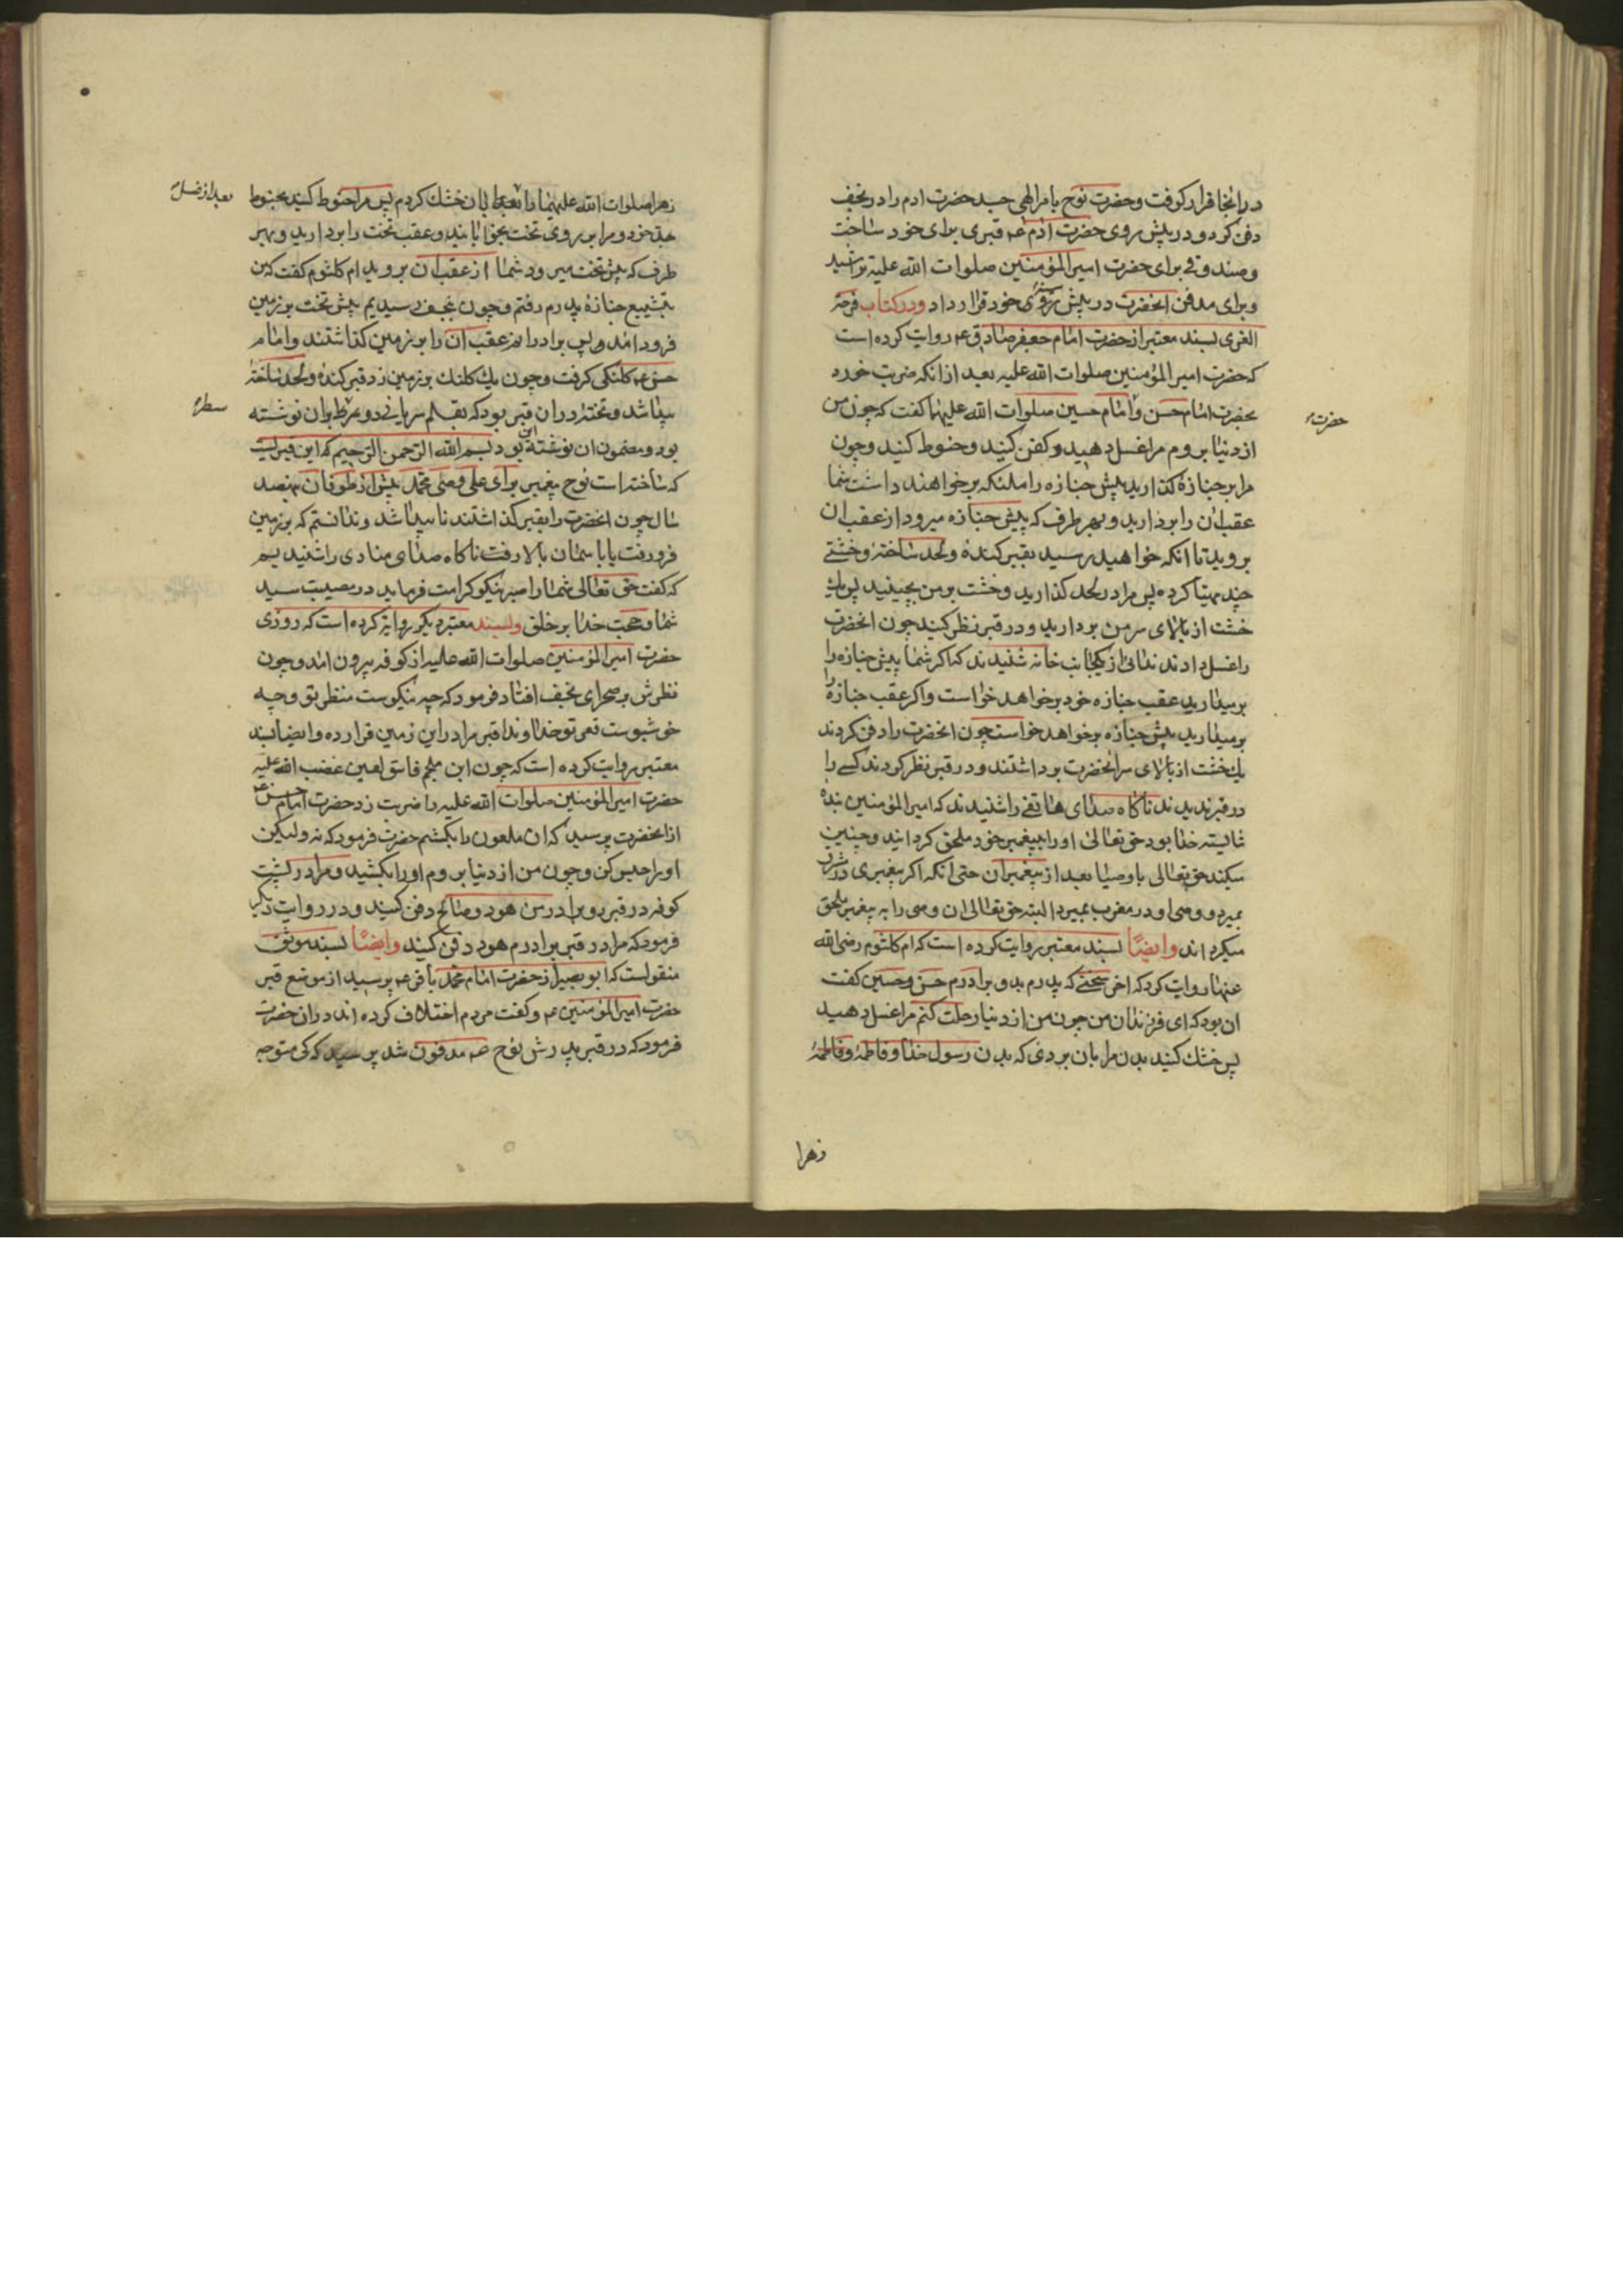 در انجا قرار کرفت و حضرت نوح بامر الهی جسد حضرت ادم را در نجف
دفن کرد و در پیش روی حضرت ادم عم قبری برای خود ساخت
و صندوقی برای حضرت امیر المؤمنین صلوات الله علیه تراشید
و برای مدفن انحضرت در پیش روی خود قرار داد و در کتاب فرحة
الغری بسند معتبر از حضرت امام جعفر صادق عم روایت کرده است
که حضرت امیر المؤمنین صلوات الله علیه بعد از انکه ضربت خورد
بحضرت امام حسن و امام حسین صلوات الله علیهما کفت که چون من
حضرت
از دنیا بروم مرا غسل دهید و کفن کنید و حنوط کنید و چون
مرا بر جنازه کذارید پیش جنازه را ملئکه برخواهند داشت شما
عقب ان را بردارید و بهر طرف که پیش جنازه میرود از عقب ان
بروید تا انکه خواهید رسید بقبر کنده و لحد ساخته و خشتی
چند مهیا کرده پس مرا در لحد کذارید و خشت بر من بچینید پس یك
خشت از بالای سر من بردارید و در قبر نظر کنید چون انحضرت
را غسل دادند ندائی از یکجانب خانه شنیدند که اکر شما پیش جنازه را
برمیدارید عقب جنازه خود برخواهد خواست و اکر عقب جنازه را
برمیدارید پیش جنازه برخواهد خواست چون انحضرت را دفن کردند
یك خشت از بالای سر انحضرت برداشتند و در قبر نظر کردند کسی را
در قبر ندیدند ناکاه صدای هاتفی را شنیدند که امیر المؤمنین بنده
شایسته خدا بود حق تعالی او را به پیغمبر خود ملحق کردانید و چنین
میکند حق تعالی باوصیا بعد از پیغمبران حتی انکه اکر پیغمبری در مشرق
بمیرد و وصی او در مغرب بمیرد البته حق تعالی ان وصی را به پیغمبر ملحق
میکرداند و ایضًا بسند معتبر روایت کرده است که ام کلثوم رضی الله
عنها روایت کرد که اخر سخنی که پدرم بدو برادرم حسن و حسین کفت
ان بود که ای فرزندان من چون من از دنیا رحلت کنم مرا غسل دهید
پس خشك کنید بدن مرا بان بردی که بدن رسول خدا و فاطمه و فاطمهٔ
زهرا
زهرا صلوات الله علیهما را بان خشك کردم پس مرا حنوط کنید بحنوط
بعد از غسل
جد خود و مرا بر روی تخت بخوابانید و عقب تخت را بردارید و بهر
طرف که پیش تخت میرود شما از عقب ان بروید ام کلثوم کفت که من
بتشییع جنازهٔ پدرم رفتم و چون بنجف رسیدیم پیش تخت بر زمین
فرود امد و پس برادرانم عقب ان را بر زمین کذاشتند و امام
حسن عم کلنکی کرفت و چون یك کلنك بر زمین زد قبر کنده و لحد ساخته
پیدا شد و تخته در ان قبر بود که بقلم سریانی دو بران نوشته
سطر
بود و مضمون ان نوشته این بود بسم الله الرحمن الرحیم که این قبریست
که ساخته است نوح پیغمبر برای علی وصی محمد پیش از طوفان بهفتصد
سال چون انحضرت را بقبر کذاشتند ناپیدا شد و ندانستم که بر زمین
فرو رفت یا باسمان بالا رفت ناکاه صدای منادی را شنیدیم
که کفت حق تعالی شما را صبر نیکو کرامت فرماید در مصیبت سید
شما و حجت خدا بر خلق و بسند معتبر دیکر روایة کرده است که روزی
حضرت امیر المؤمنین صلوات الله علیه از کوفه بیرون امد و چون
نظرش بر صحرای نجف افتاد فرمود که چه نیکوست منظر تو و چه
خوشبوست قعر تو خداوندا قبر مرا در این زمین قرار ده و ایضا بسند
معتبر روایت کرده است که چون ابن ملجم فاسق لعین غضب الله علیه
حضرت امیر المؤمنین صلوات الله علیه را ضربت زد حضرت امام حسن عم
از انحضرت پرسید که ان ملعون را بکشم حضرت فرمود که نه ولیکن
او را حبس کن و چون من از دنیا بروم او را بکشید و مرا در پشت
کوفه در قبر دو برادر من هود و صالح دفن کنید و در روایت دیکر
فرمود که مرا در قبر برادرم هود دفن کنید و ایضًا بسند موثق
منقولست که ابو بصیر از حضرت امام محمد باقر عم پرسید از موضع قبر
حضرت امیر المؤمنین عم و کفت مردم اختلاف کرده اند در ان حضرت
فرمود که در قبر پدرش نوح عم مدفون شد پرسید که کی متوجه